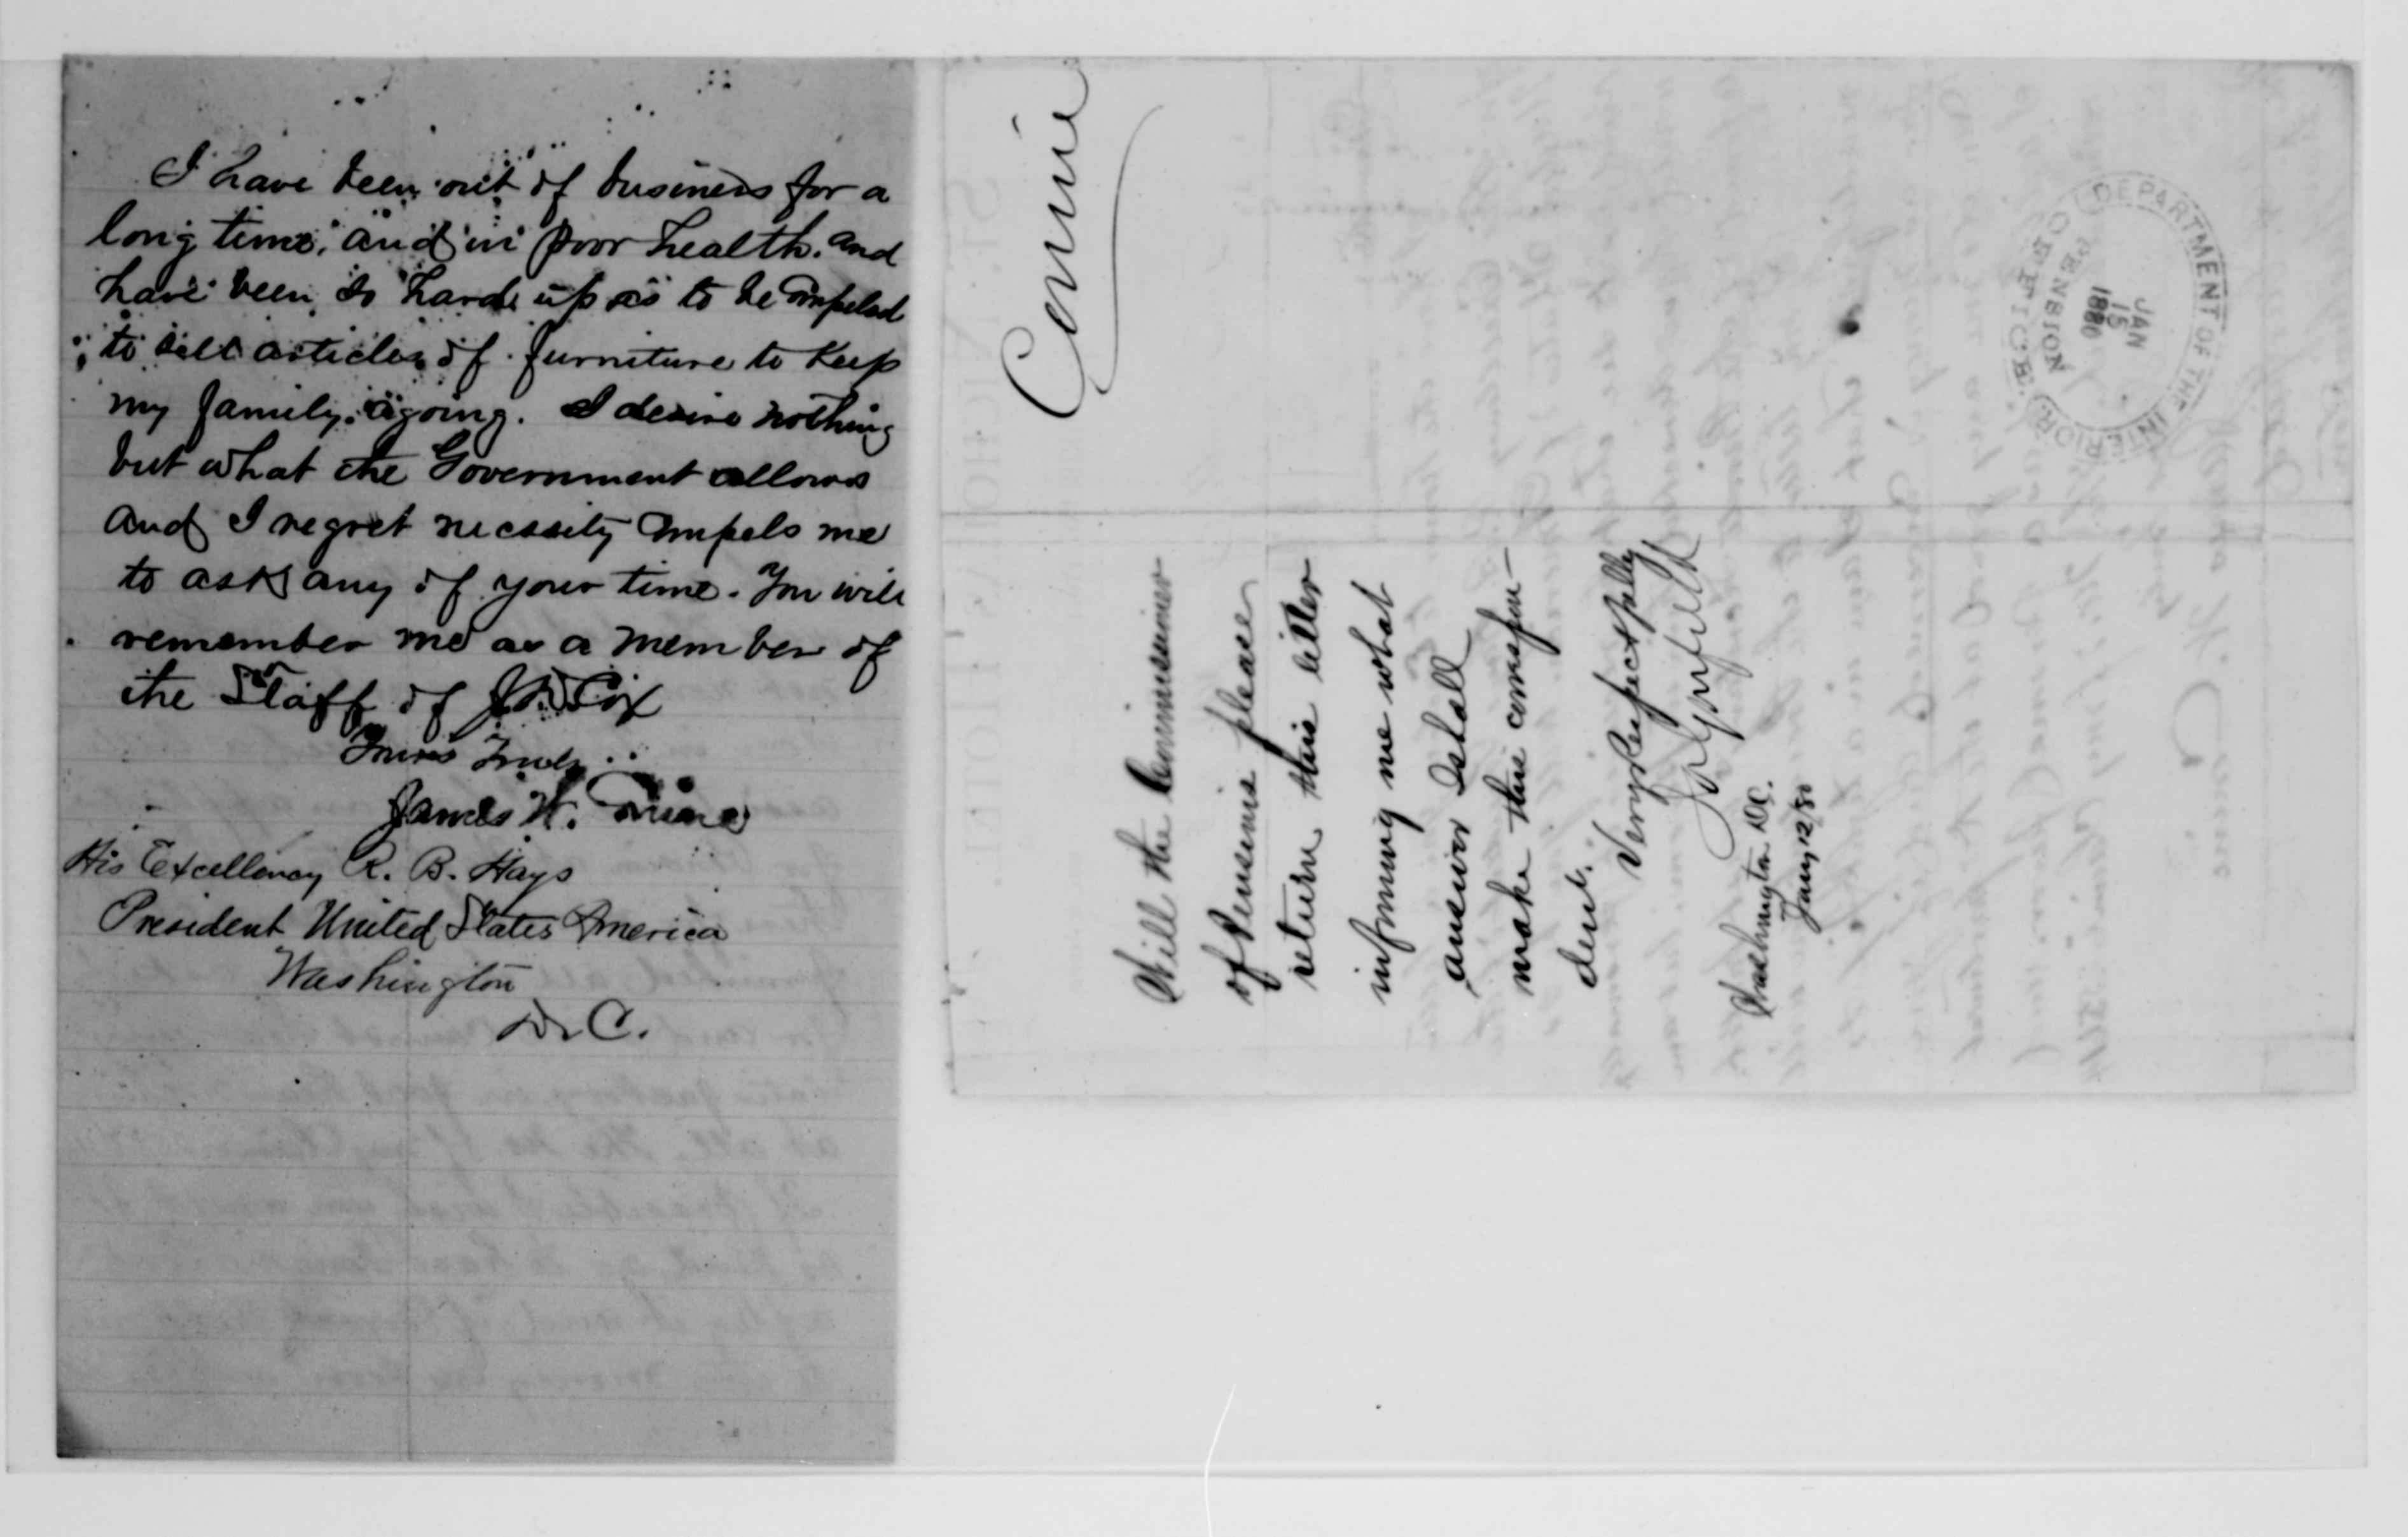 I have been out of business for a
long time, and in poor health. and
have been so hard up as to be compeled
to sell articles of furniture to keep
my family agoing. I desire nothing
but what the Government allows
and I regret necssity compels me
to ask any of your time. You will
remember me as a member of
the Staff of J. D. Cox
Yours Truly
James W.
His Excellency R. B. Hays
President United States America
Washington
D. C.
Will the Commissioner
of Pensions please
return this letter
informing me what
answer I shall
make this correspon-
dent.
Very Respectfully
J A Garfield
Washington D.C.
Jany 12/80
DEPARTMENT OF THE INTERIOR
PENSION OFFICE
JAN
15
1880